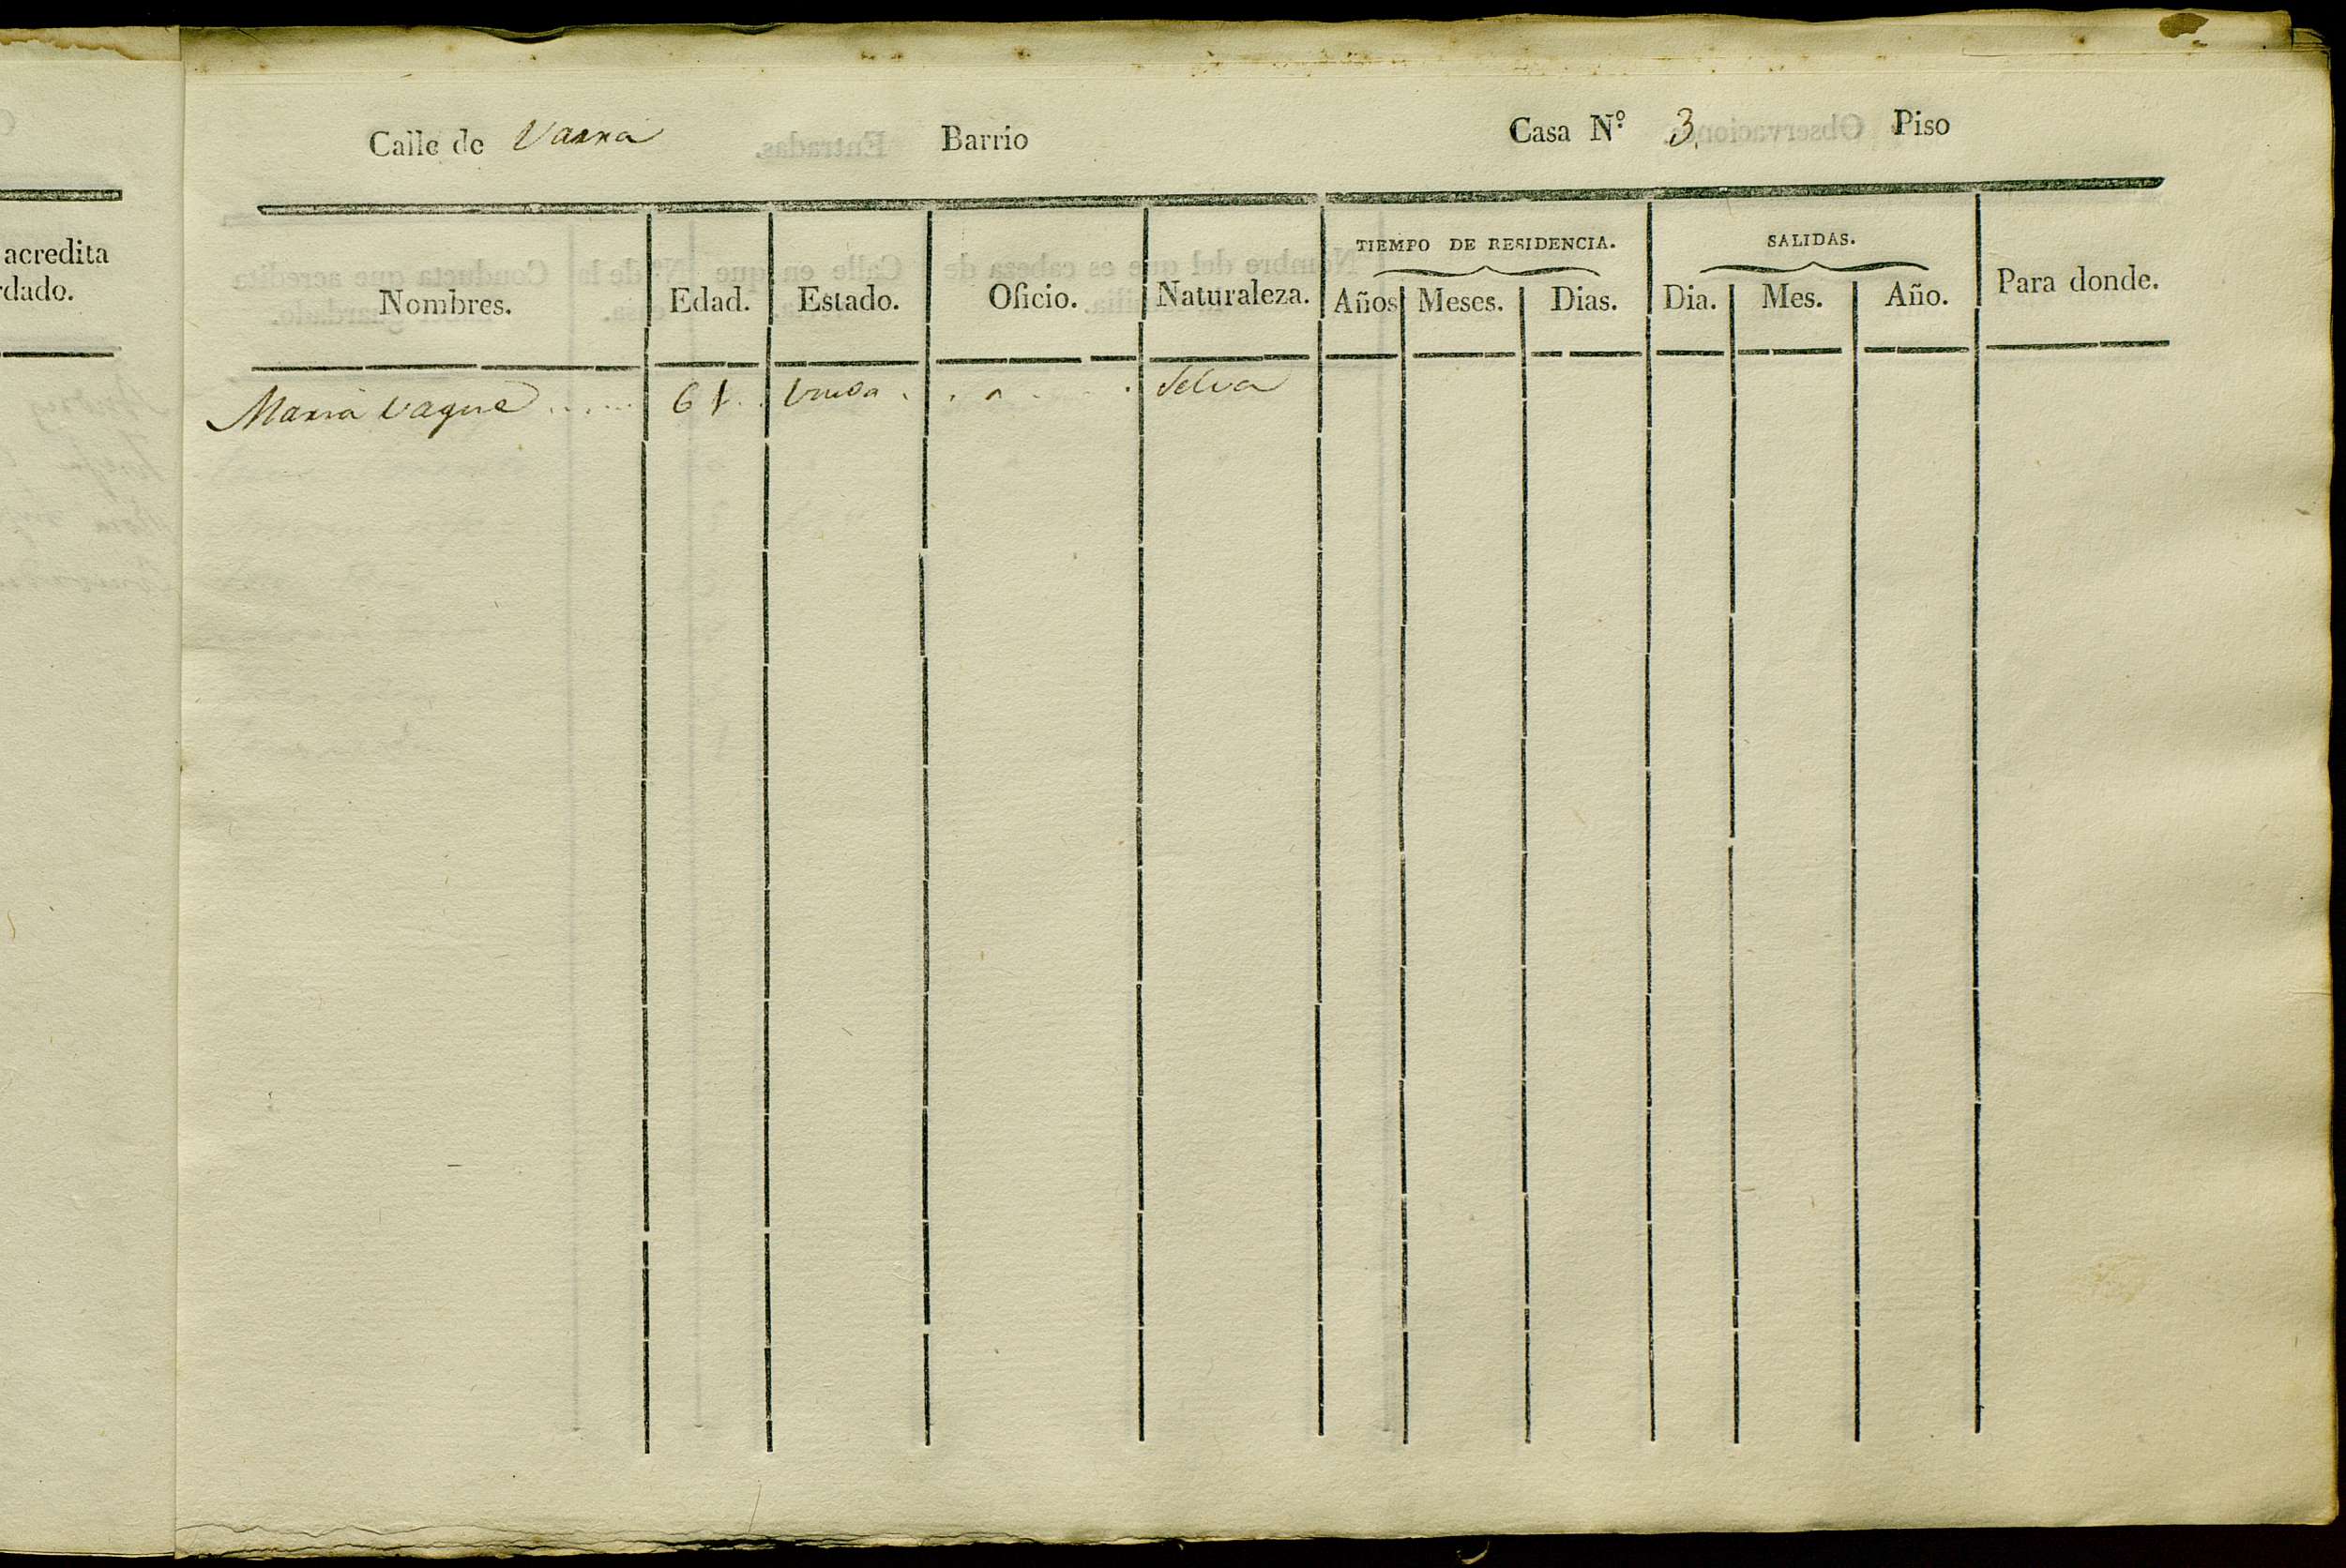 acredita
rdado.
Calle de Varra Barrio Casa N.º 3. Piso
TIEMPO DE RESIDENCIA. SALIDAS.
Nombres. Edad. Estado. Oficio. Naturaleza. Años Meses. Dias. Dia. Mes. Año. Para donde.
Maria Vaque ...... 61 .. Viuda . . . . . Selva